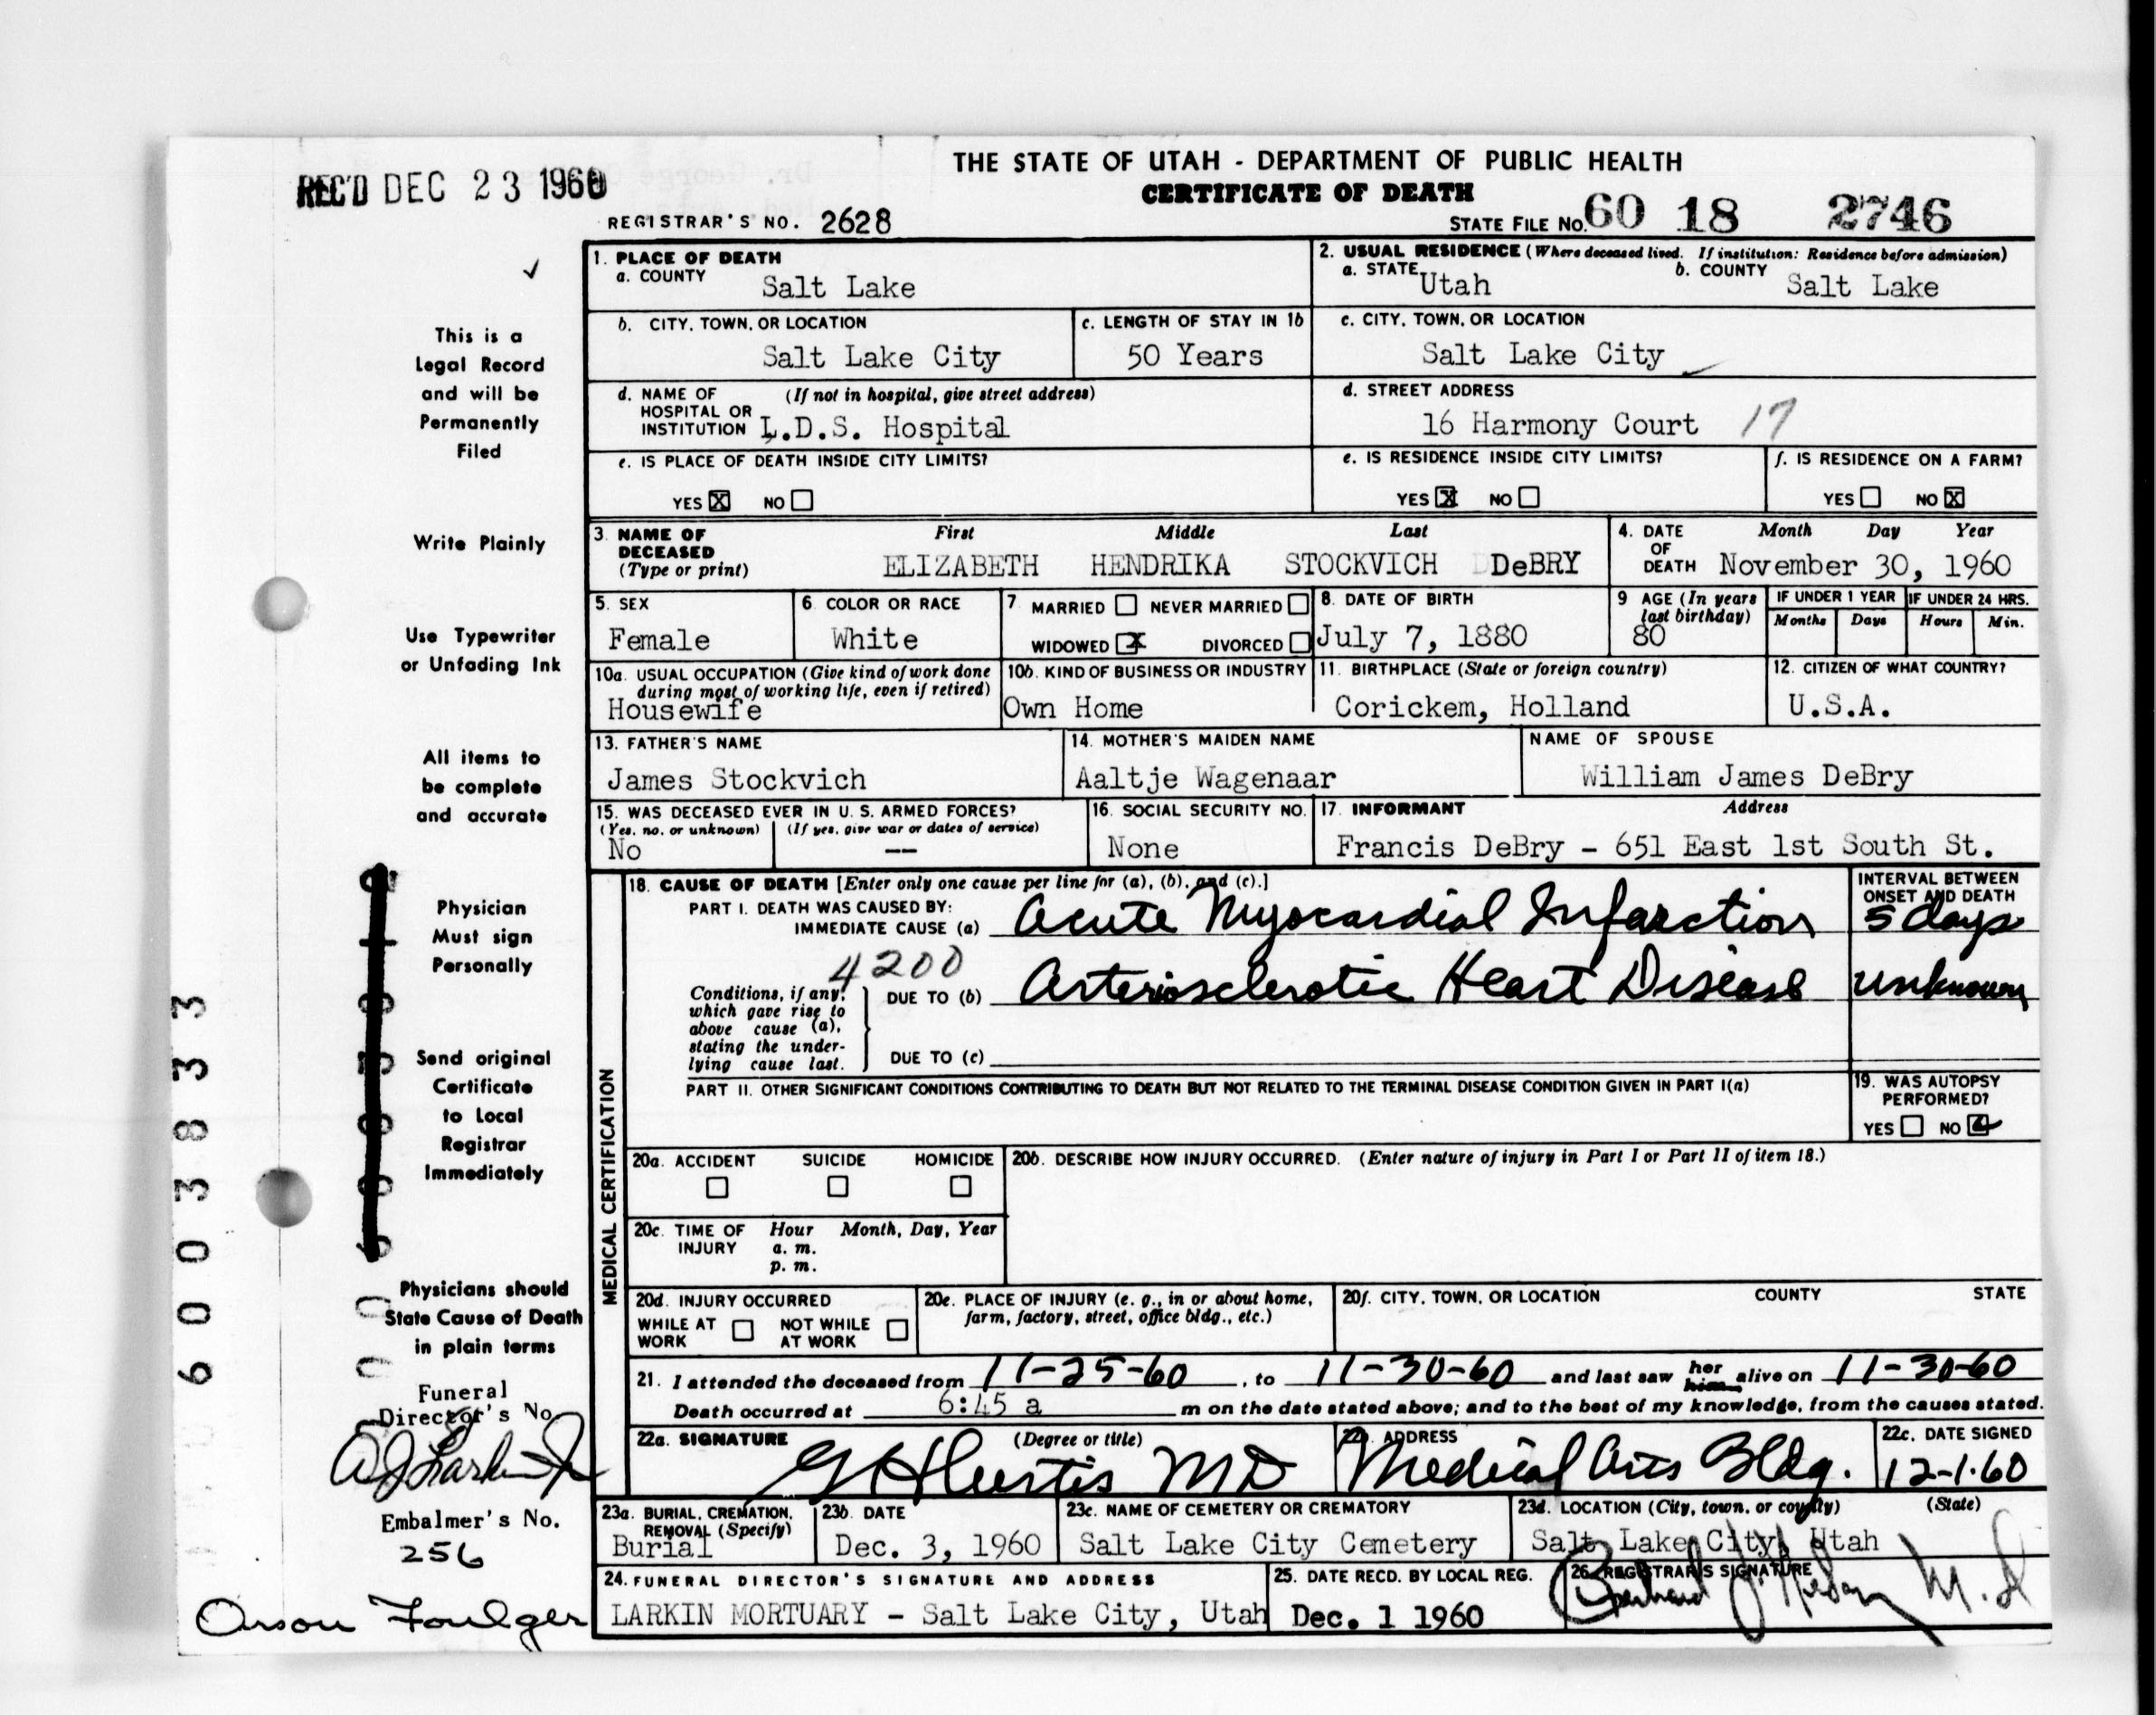 THE STATE OF UTAH - DEPARTMENT OF PUBLIC HEALTH
REC'D DEC 23 1960
CERTIFICATE OF DEATH
REGISTRAR'S NO. 2628
STATE FILE No. 60 18 2746
1. PLACE OF DEATH
a. COUNTY Salt Lake
2. USUAL RESIDENCE (Where deceased lived. If institution: Residence before admission)
a. STATE Utah b. COUNTY Salt Lake
b. CITY, TOWN, OR LOCATION Salt Lake City
c. LENGTH OF STAY IN 1b 50 Years
c. CITY, TOWN, OR LOCATION Salt Lake City
d. NAME OF HOSPITAL OR INSTITUTION (If not in hospital, give street address) L.D.S. Hospital
d. STREET ADDRESS 16 Harmony Court 17
e. IS PLACE OF DEATH INSIDE CITY LIMITS?
YES X NO
e. IS RESIDENCE INSIDE CITY LIMITS?
YES X NO
f. IS RESIDENCE ON A FARM?
YES NO X
3. NAME OF DECEASED (Type or print)
First Middle Last
ELIZABETH HENDRIKA STOCKVICH DeBRY
4. DATE OF DEATH Month Day Year
November 30, 1960
5. SEX Female
6. COLOR OR RACE White
7. MARRIED NEVER MARRIED
WIDOWED X DIVORCED
8. DATE OF BIRTH July 7, 1880
9 AGE (In years last birthday) 80
IF UNDER 1 YEAR Months Days
IF UNDER 24 HRS. Hours Min.
10a. USUAL OCCUPATION (Give kind of work done during most of working life, even if retired)
Housewife
10b. KIND OF BUSINESS OR INDUSTRY
Own Home
11. BIRTHPLACE (State or foreign country)
Corickem, Holland
12. CITIZEN OF WHAT COUNTRY?
U.S.A.
13. FATHER'S NAME
James Stockvich
14. MOTHER'S MAIDEN NAME
Aaltje Wagenaar
NAME OF SPOUSE
William James DeBry
15. WAS DECEASED EVER IN U. S. ARMED FORCES?
(Yes, no, or unknown) (If yes, give war or dates of service)
No --
16. SOCIAL SECURITY NO.
None
17. INFORMANT Address
Francis DeBry - 651 East 1st South St.
MEDICAL CERTIFICATION
18. CAUSE OF DEATH [Enter only one cause per line for (a), (b), and (c).]
INTERVAL BETWEEN ONSET AND DEATH
PART I. DEATH WAS CAUSED BY:
IMMEDIATE CAUSE (a) Acute Myocardial Infarction 5 days
4200
Conditions, if any, which gave rise to above cause (a), stating the underlying cause last.
DUE TO (b) Arteriosclerotic Heart Disease unknown
DUE TO (c)
PART II. OTHER SIGNIFICANT CONDITIONS CONTRIBUTING TO DEATH BUT NOT RELATED TO THE TERMINAL DISEASE CONDITION GIVEN IN PART I(a)
19. WAS AUTOPSY PERFORMED?
YES NO
20a. ACCIDENT SUICIDE HOMICIDE
20b. DESCRIBE HOW INJURY OCCURRED. (Enter nature of injury in Part I or Part II of item 18.)
20c. TIME OF INJURY Hour Month, Day, Year
a. m.
p. m.
20d. INJURY OCCURRED
WHILE AT WORK NOT WHILE AT WORK
20e. PLACE OF INJURY (e. g., in or about home, farm, factory, street, office bldg., etc.)
20f. CITY, TOWN, OR LOCATION COUNTY STATE
21. I attended the deceased from 11-25-60, to 11-30-60 and last saw her him alive on 11-30-60
Death occurred at 6:45 a m on the date stated above; and to the best of my knowledge, from the causes stated.
22a. SIGNATURE (Degree or title)
G H Curtis MD
22b. ADDRESS
Medical Arts Bldg.
22c. DATE SIGNED
12-1-60
23a. BURIAL, CREMATION, REMOVAL (Specify)
Burial
23b. DATE
Dec. 3, 1960
23c. NAME OF CEMETERY OR CREMATORY
Salt Lake City Cemetery
23d. LOCATION (City, town, or county) (State)
Salt Lake City, Utah
24. FUNERAL DIRECTOR'S SIGNATURE AND ADDRESS
LARKIN MORTUARY - Salt Lake City, Utah
25. DATE RECD. BY LOCAL REG.
Dec. 1 1960
26. REGISTRAR'S SIGNATURE
This is a
Legal Record
and will be
Permanently
Filed
Write Plainly
Use Typewriter
or Unfading Ink
All items to
be complete
and accurate
Physician
Must sign
Personally
Send original
Certificate
to Local
Registrar
Immediately
Physicians should
State Cause of Death
in plain terms
Funeral
Director's No.
Embalmer's No.
256
Orson Foulger
6003833